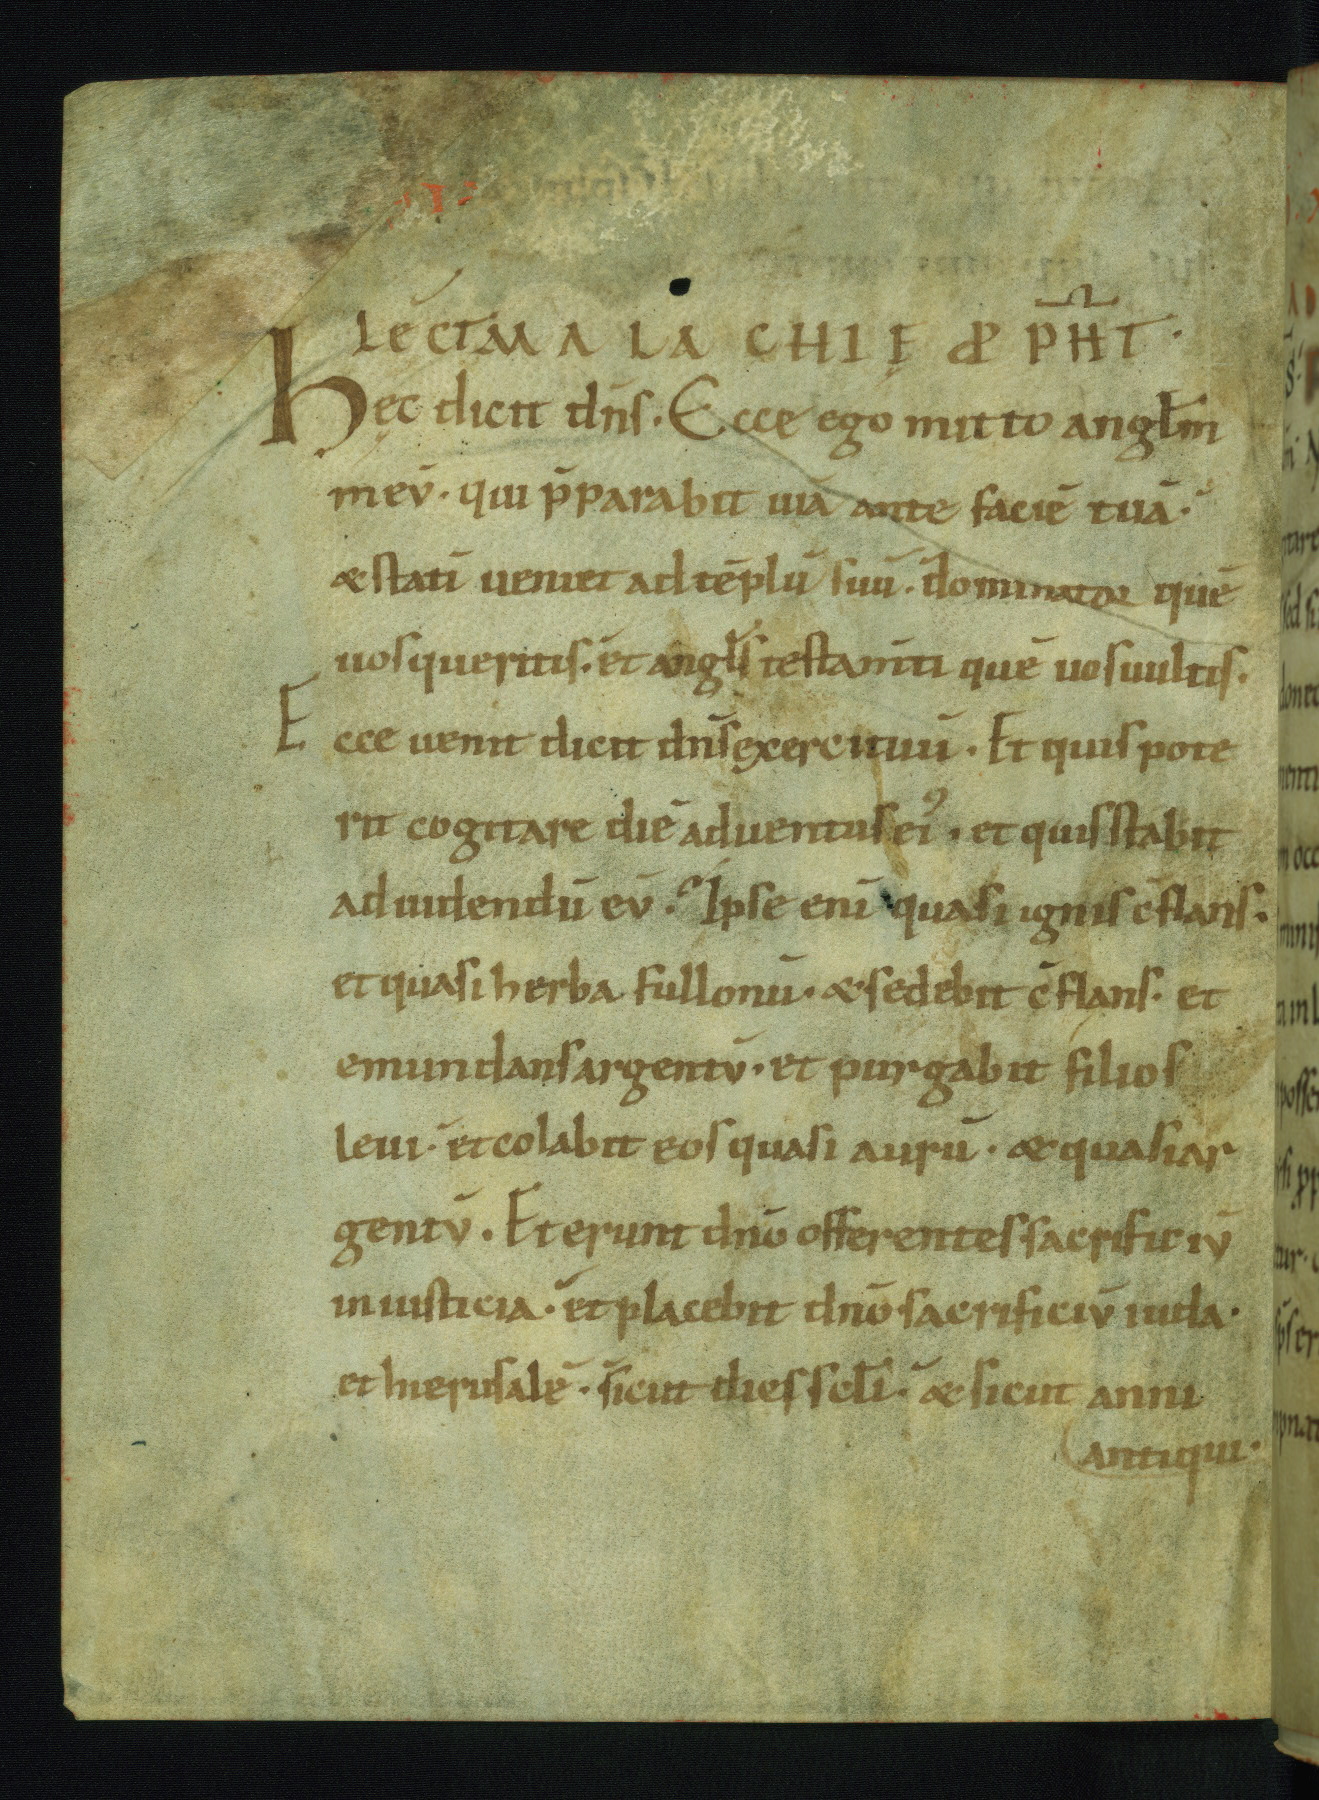 LECT MALACHIĘ PPH̄T·
Hęc dicit dn̄s. Ecce ego mitto angl̄m
mev̄. qui p̄parabit uiā ante faciē tuā.
& statī ueniet ad tēplū suū. dominator quē
uos queritis. et angl̄s testam̄ti quē uos uultis.
Ecce uenit dicit dn̄s exercituū. Et quis pote
rit cogitare diē aduentus ei9. et quis stabit
ad uidendū ev̄. Ipse enī quasi ignis c̄flans.
et quasi herba fullonū. & sedebit c̄flans. et
emundans argentv̄. et purgabit filios
leui. et colabit eos quasi aurū. & quasi ar
gentv̄. Et erunt dn̄o offerentes sacrificiv̄
in iusticia. et placebit dn̄o sacrificiv̄ iuda.
et hierusalē. sicut dies scl̄i. & sicut anni
antiqui.